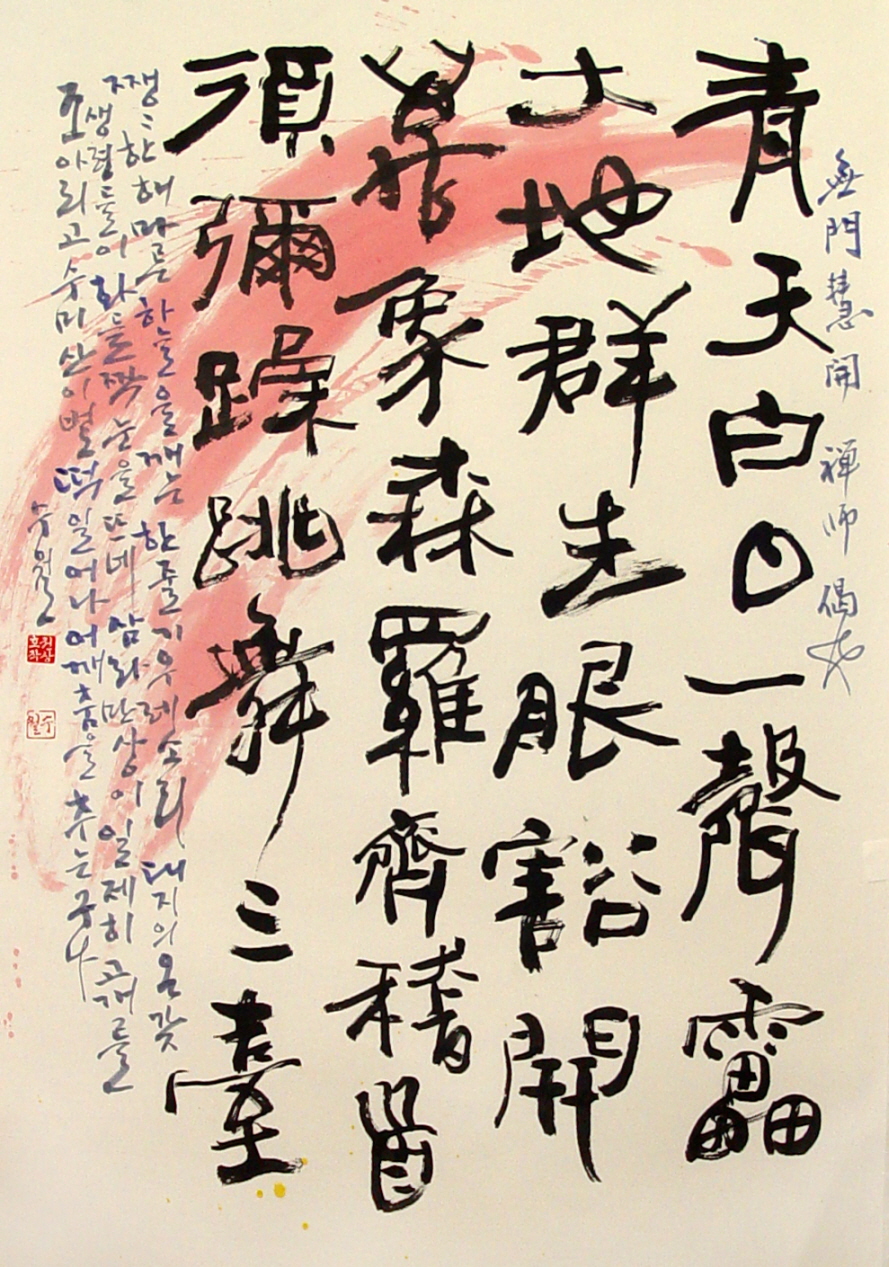 無門慧開 禪師 偈
青天白日一聲靁
大地群生眼豁開
萬象森羅齊稽首
須彌躁跳舞三臺
쨍〃한 해 마른 하늘을 깨는 한 줄기 우레소리 대지의 온갖
생령들이 화들짝 눈을 뜨네 삼라만상이 일제히 고개를
조아리고 수미산이 벌떡 일어나 어깨춤을 추는구나
수월
권상호작
수월